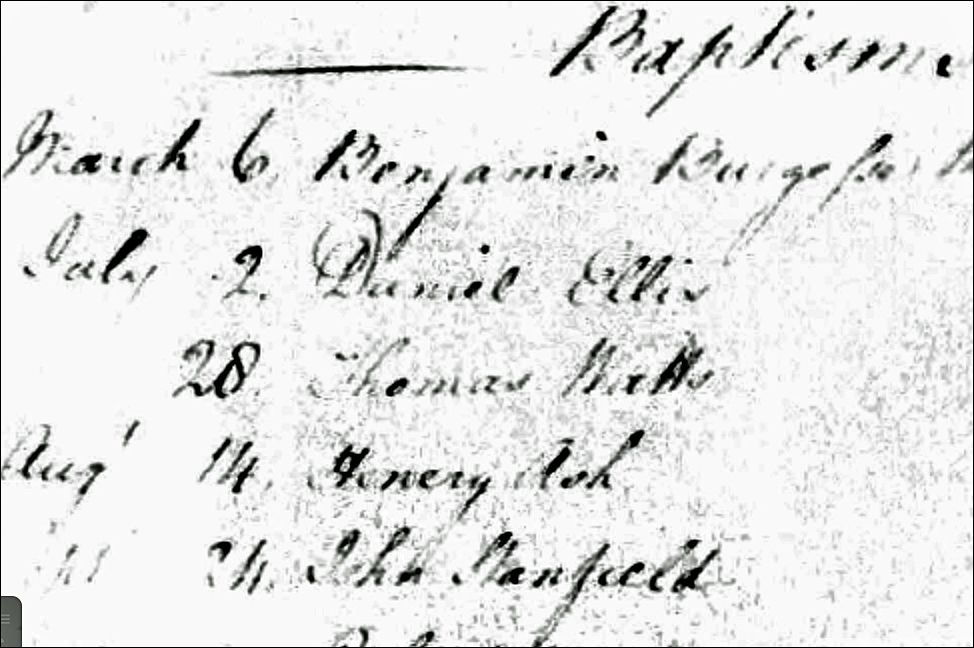 Baptisms
March 6. Benjamin Burgess
July 2. Daniel Ellis
28. Thomas Watts
Augt 14. Henery Ash
24. John Stanfield